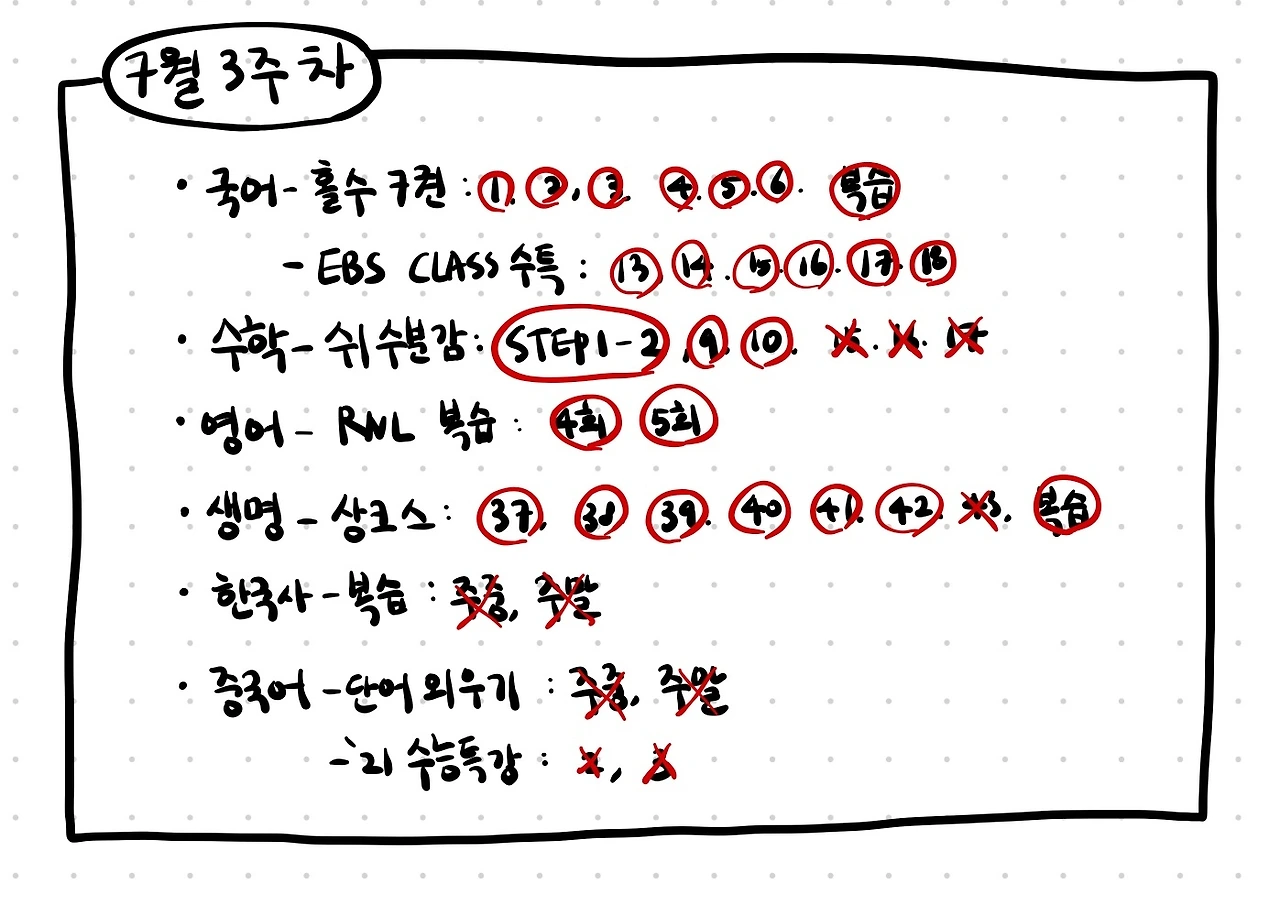 7월 3주차
• 국어 - 홀수 7권 : 1, 2, 3, 4. 5. 6. 복습
- EBS CLASS 수특 : 13, 14. 15. 16. 17. 18
• 수학 - 쉬 수분감 : STEP1-2, 9. 10. 15. 16. 17
• 영어 - RNL 복습 : 4회 5회
• 생명 - 상크스 : 37, 38 39. 40 41. 42. 43, 복습
• 한국사 - 복습 : 주중, 주말
• 중국어 - 단어 외우기 : 주중, 주말
- '21 수능특강 : 2, 3